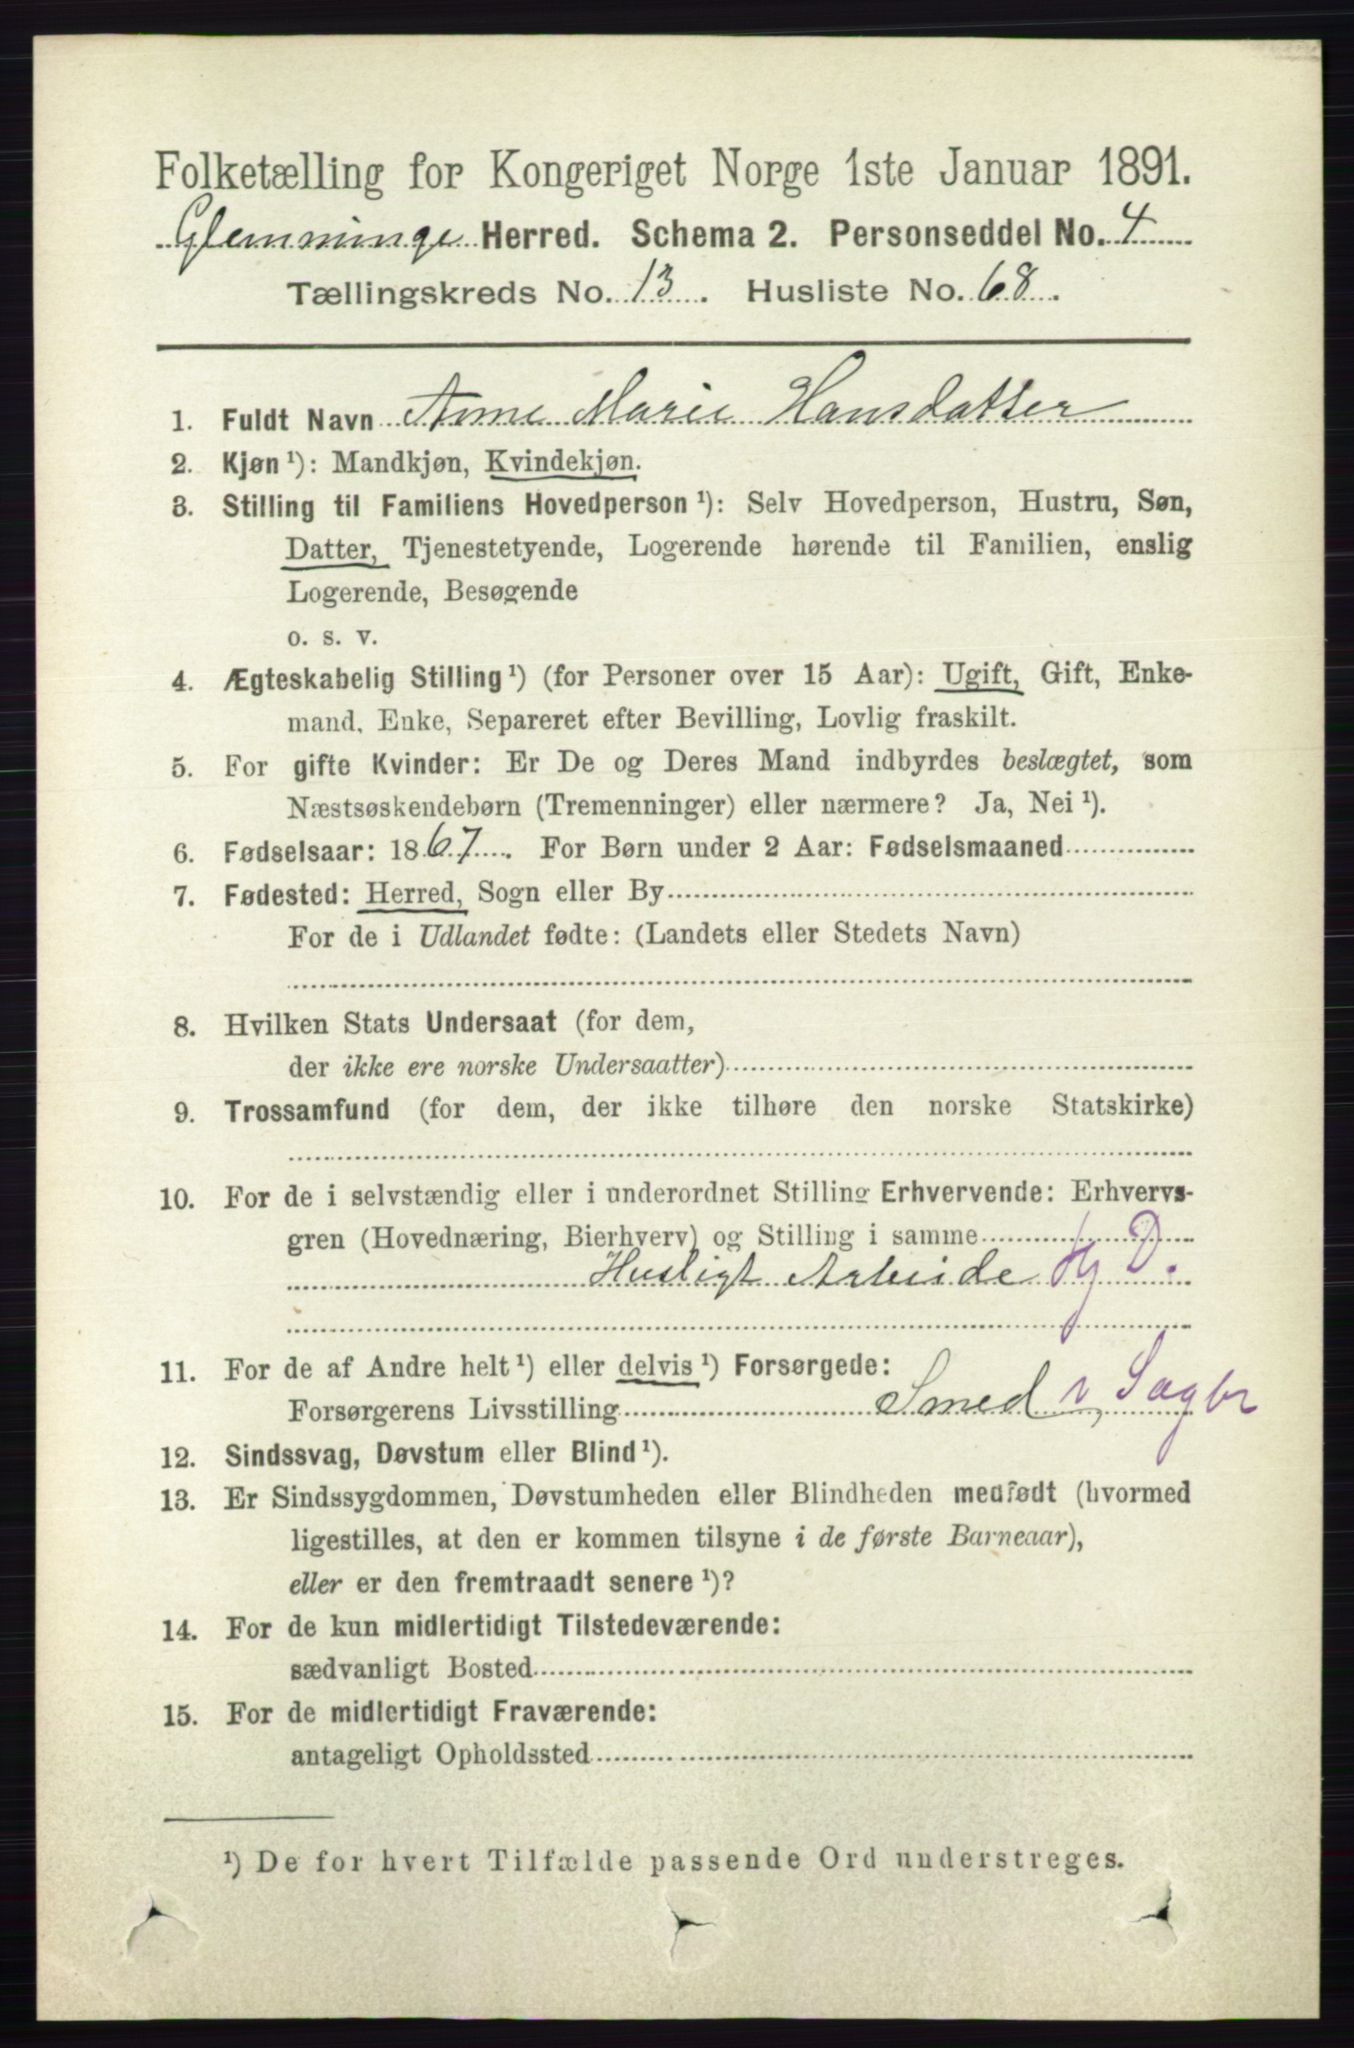 Folketælling for Kongeriget Norge 1ste Januar 1891.
Glemminge Herred. Schema 2. Personseddel No. 4
Tællingskreds No. 13. Husliste No. 68.
1. Fuldt Navn Anne Marie Hansdatter
2. Kjøn ¹): Mandkjøn, Kvindekjøn.
3. Stilling til Familiens Hovedperson ¹): Selv Hovedperson, Hustru, Søn,
Datter, Tjenestetyende, Logerende hørende til Familien, enslig
Logerende, Besøgende
o. s. v.
4. Ægteskabelig Stilling ¹) (for Personer over 15 Aar): Ugift, Gift, Enke-
mand, Enke, Separeret efter Bevilling, Lovlig fraskilt.
5. For gifte Kvinder: Er De og Deres Mand indbyrdes beslægtet, som
Næstsøskendebørn (Tremenninger) eller nærmere? Ja, Nei ¹).
6. Fødselsaar: 1867. For Børn under 2 Aar: Fødselsmaaned
7. Fødested: Herred, Sogn eller By
For de i Udlandet fødte: (Landets eller Stedets Navn)
8. Hvilken Stats Undersaat (for dem,
der ikke ere norske Undersaatter)
9. Trossamfund (for dem, der ikke tilhøre den norske Statskirke)
10. For de i selvstændig eller i underordnet Stilling Erhvervende: Erhvervs-
gren (Hovednæring, Bierhverv) og Stilling i samme
Husligt Arbeide Hj D.
11. For de af Andre helt ¹) eller delvis ¹) Forsørgede:
Forsørgerens Livsstilling Smed v, Sagbr
12. Sindssvag, Døvstum eller Blind ¹).
13. Er Sindssygdommen, Døvstumheden eller Blindheden medfødt (hvormed
ligestilles, at den er kommen tilsyne i de første Barneaar),
eller er den fremtraadt senere ¹)?
14. For de kun midlertidigt Tilstedeværende:
sædvanligt Bosted
15. For de midlertidigt Fraværende:
antageligt Opholdssted
¹) De for hvert Tilfælde passende Ord understreges.